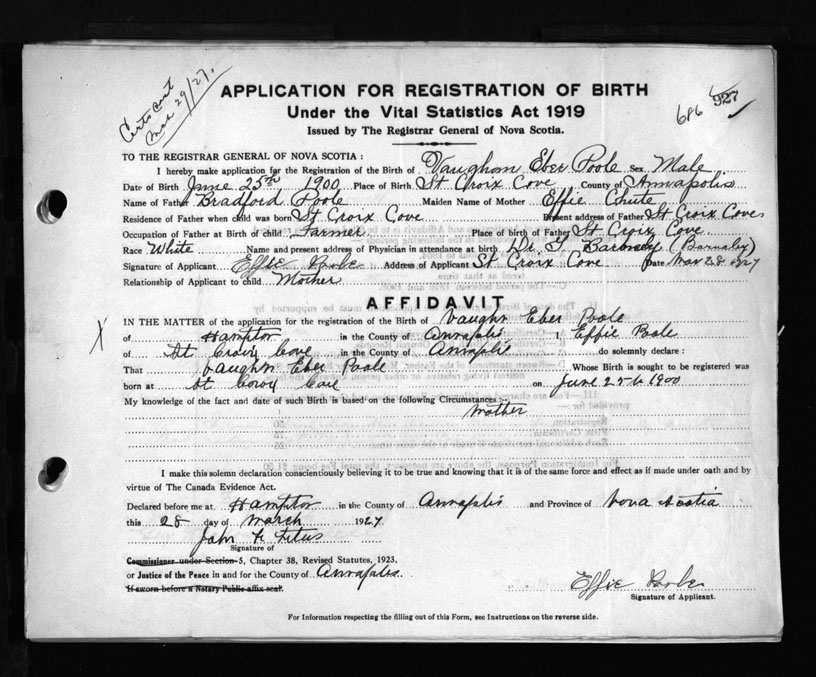 Certs Cert
Mar 29/27.
APPLICATION FOR REGISTRATION OF BIRTH
Under the Vital Statistics Act 1919
Issued by The Registrar General of Nova Scotia.
686 927
TO THE REGISTRAR GENERAL OF NOVA SCOTIA:
I hereby make application for the Registration of the Birth of Vaughan Eber Poole Sex Male
Date of Birth June 25th 1900 Place of Birth St Croix Cove County of Annapolis
Name of Father Bradford Poole Maiden Name of Mother Effie Chute
Residence of Father when child was born St Croix Cove Present address of Father St Croix Cove
Occupation of Father at Birth of child Farmer Place of birth of Father St Croix Cove
Race White Name and present address of Physician in attendance at birth Dr. (Barnaby)
Signature of Applicant Effie Poole Address of Applicant St Croix Cove Date Mar 28 1927
Relationship of Applicant to child Mother
AFFIDAVIT
IN THE MATTER of the application for the registration of the Birth of Vaughn Eber Poole
X of Hampton in the County of Annapolis I, Effie Poole
of St Croix Cove in the County of Annapolis do solemnly declare:
That Vaughn Eber Poole Whose Birth is sought to be registered was
born at St Croix Cove on June 25th 1900
My knowledge of the fact and date of such Birth is based on the following Circumstances:-
Mother
I make this solemn declaration conscientiously believing it to be true and knowing that it is of the same force and effect as if made under oath and by
virtue of The Canada Evidence Act.
Declared before me at Hampton in the County of Annapolis and Province of Nova Scotia
this 28 day of March 1927
John F Titus
Signature of
Commissioner under Section 5, Chapter 38, Revised Statutes, 1923.
or Justice of the Peace in and for the County of Annapolis.
If sworn before a Notary Public affix seal.
Effie Poole
Signature of Applicant.
For Information respecting the filling out of this Form, see Instructions on the reverse side.